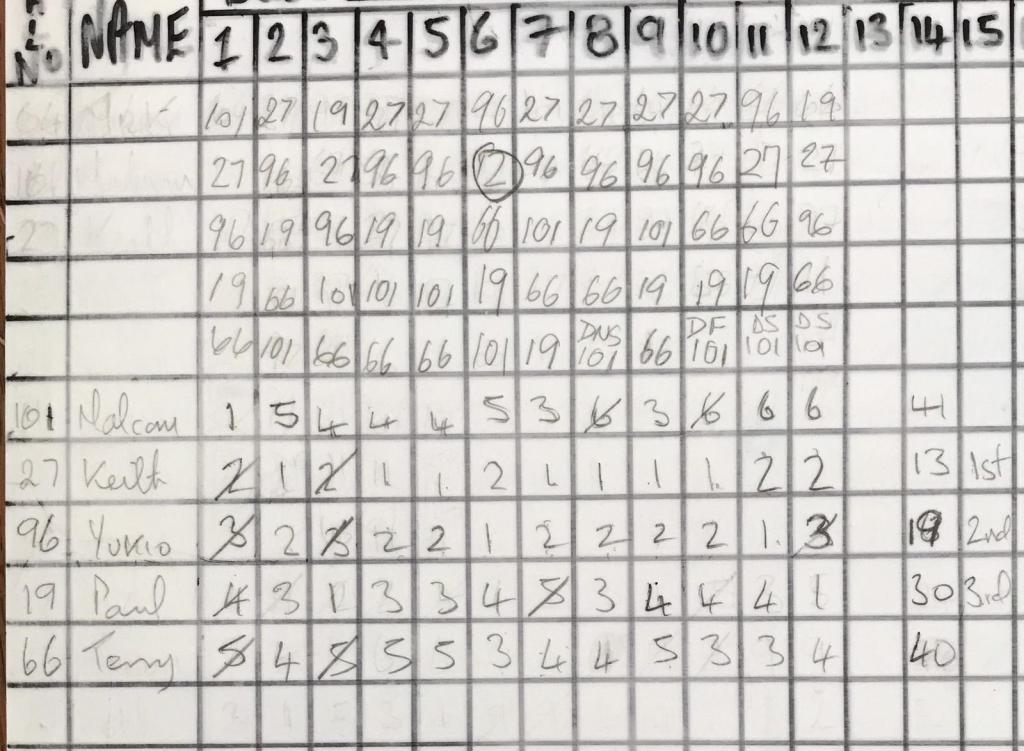 No NAME 1 2 3 4 5 6 7 8 9 10 11 12 13 14 15
101 27 19 27 27 96 27 27 27 27 96 19
27 96 27 96 96 27 96 96 96 96 27 27
27 96 19 96 19 19 66 101 19 101 66 66 96
19 66 101 101 101 19 66 66 19 19 19 66
66 101 66 66 66 101 19 DNS 101 66 DF 101 DS 101 DS 101
101 Malcom 1 5 4 4 4 5 3 6 3 6 6 6 41
27 Keith 2 1 2 1 1 2 1 1 1 1 2 2 13 1st
96 Yukio 3 2 3 2 2 1 2 2 2 2 1 3 2nd
19 Paul 4 3 1 3 3 4 5 3 4 4 4 1 30 3rd
66 Terry 5 4 5 5 5 3 4 4 5 3 3 4 40